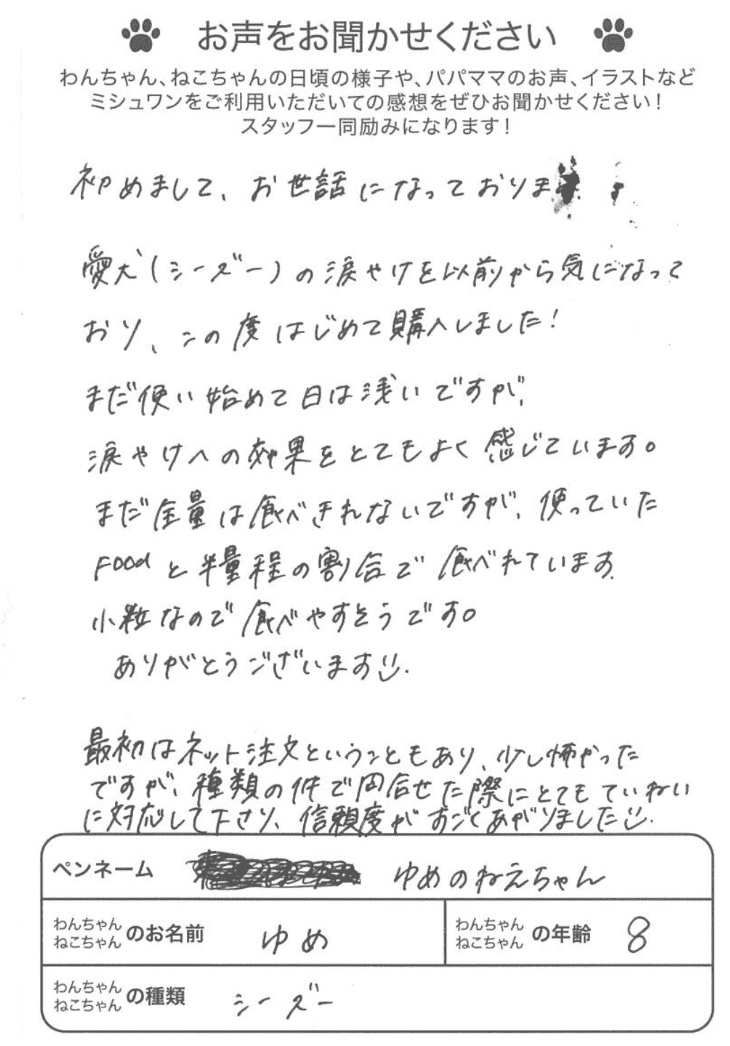 お声をお聞かせください
わんちゃん、ねこちゃんの日頃の様子や、パパママのお声、イラストなど
ミシュワンをご利用いただいての感想をぜひお聞かせください！
スタッフ一同励みになります！
初めまして、お世話になっておりま
愛犬（シーズー）の涙やけを以前から気になって
おり、この度はじめて購入しました！
まだ使い始めて日は浅いですが、
涙やけへの効果をとてもよく感じています。
まだ全量は食べきれないですが、使っていた
Foodと半量程の割合で食べれています。
小粒なので食べやすそうです。
ありがとうございます
最初はネット注文ということもあり、少し怖かった
ですが、種類の件で問合せた際にとてもていねい
に対応して下さり、信頼度がすごくあがりました
ペンネーム ゆめのねえちゃん
わんちゃん ねこちゃん のお名前 ゆめ わんちゃん ねこちゃん の年齢 8
わんちゃん ねこちゃん の種類 シーズー